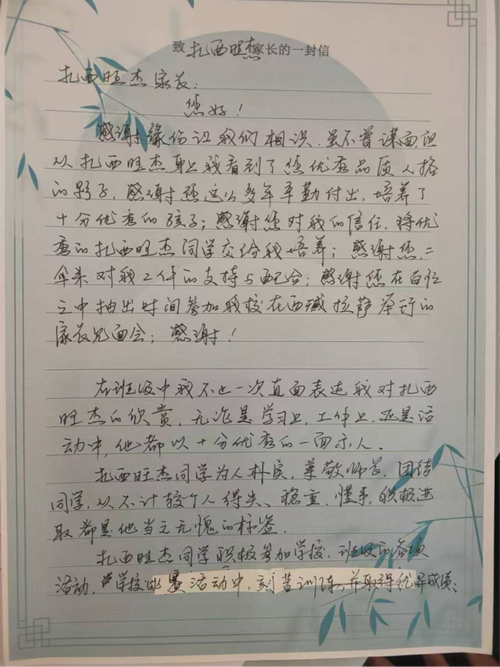 致扎西旺杰家长的一封信
扎西旺杰家长：
您好！
感谢缘份让我们相识，虽不曾谋面但
从扎西旺杰身上我看到了您优秀品质人格
的影子，感谢您这么多年辛勤付出，培养了
十分优秀的孩子；感谢您对我的信任，将优
秀的扎西旺杰同学交给我培养；感谢您二
年来对我工作的支持与配合；感谢您在百忙
之中抽出时间参加我校在西藏拉萨举行的
家长见面会；感谢！
在班级中我不止一次直面表达我对扎西
旺杰的欣赏，无论是学习上，工作上，还是活
动中，他都以十分优秀的一面示人。
扎西旺杰同学为人朴实，尊敬师长，团结
同学，从不计较个人得失、稳重，懂事，积极进
取都是他当之无愧的标签。
扎西旺杰同学积极参加学校、班级的各项
活动，学校活动中，刻苦训练，并取得优异成绩；